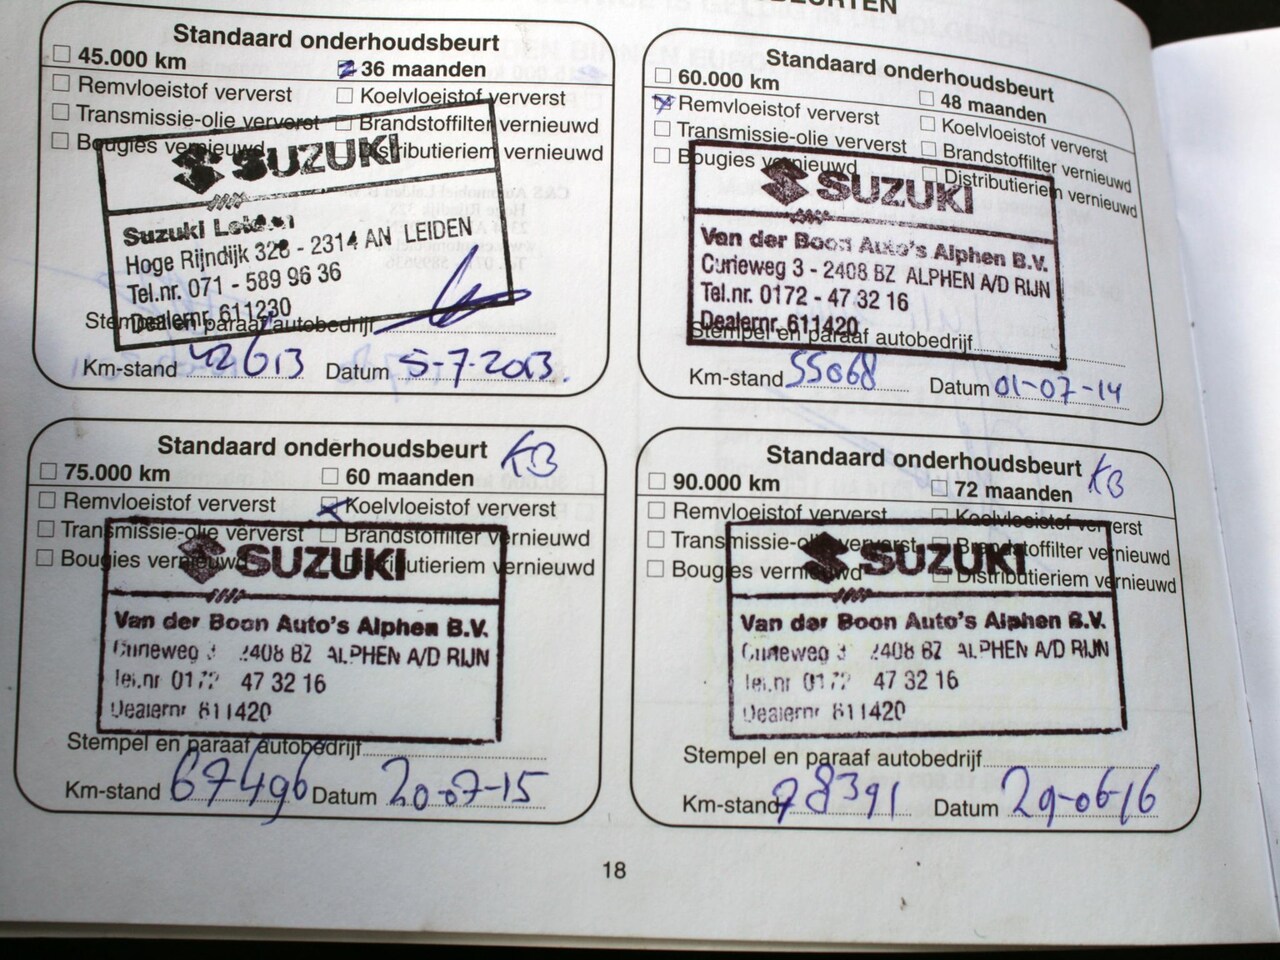 Standaard onderhoudsbeurt
45.000 km 36 maanden
Remvloeistof ververst Koelvloeistof ververst
Transmissie-olie ververst Brandstoffilter vernieuwd
Bougies vernieuwd Distributieriem vernieuwd
SUZUKI
Suzuki Leiden
Hoge Rijndijk 328 - 2314 AN LEIDEN
Tel.nr. 071 - 589 96 36
Dealernr. 611230
Stempel en paraaf autobedrijf
Km-stand 42613 Datum 5-7-2013.
Standaard onderhoudsbeurt
60.000 km 48 maanden
Remvloeistof ververst Koelvloeistof ververst
Transmissie-olie ververst Brandstoffilter vernieuwd
Bougies vernieuwd Distributieriem vernieuwd
SUZUKI
Van der Boon Auto's Alphen B.V.
Curieweg 3 - 2408 BZ ALPHEN A/D RIJN
Tel.nr. 0172 - 47 32 16
Dealernr. 611420
Stempel en paraaf autobedrijf
Km-stand 55068 Datum 01-07-14
Standaard onderhoudsbeurt KB
75.000 km 60 maanden
Remvloeistof ververst Koelvloeistof ververst
Transmissie-olie ververst Brandstoffilter vernieuwd
Bougies vernieuwd Distributieriem vernieuwd
SUZUKI
Van der Boon Auto's Alphen B.V.
Curieweg 3 2408 BZ ALPHEN A/D RIJN
Tel.nr 0172 47 32 16
Dealernr 611420
Stempel en paraaf autobedrijf
Km-stand 67496 Datum 20-07-15
Standaard onderhoudsbeurt KB
90.000 km 72 maanden
Remvloeistof ververst Koelvloeistof ververst
Transmissie-olie ververst Brandstoffilter vernieuwd
Bougies vernieuwd Distributieriem vernieuwd
SUZUKI
Van der Boon Auto's Alphen B.V.
Curieweg 3 2408 BZ ALPHEN A/D RIJN
Tel.nr 0172 47 32 16
Dealernr 611420
Stempel en paraaf autobedrijf
Km-stand 78391 Datum 29-06-16
18